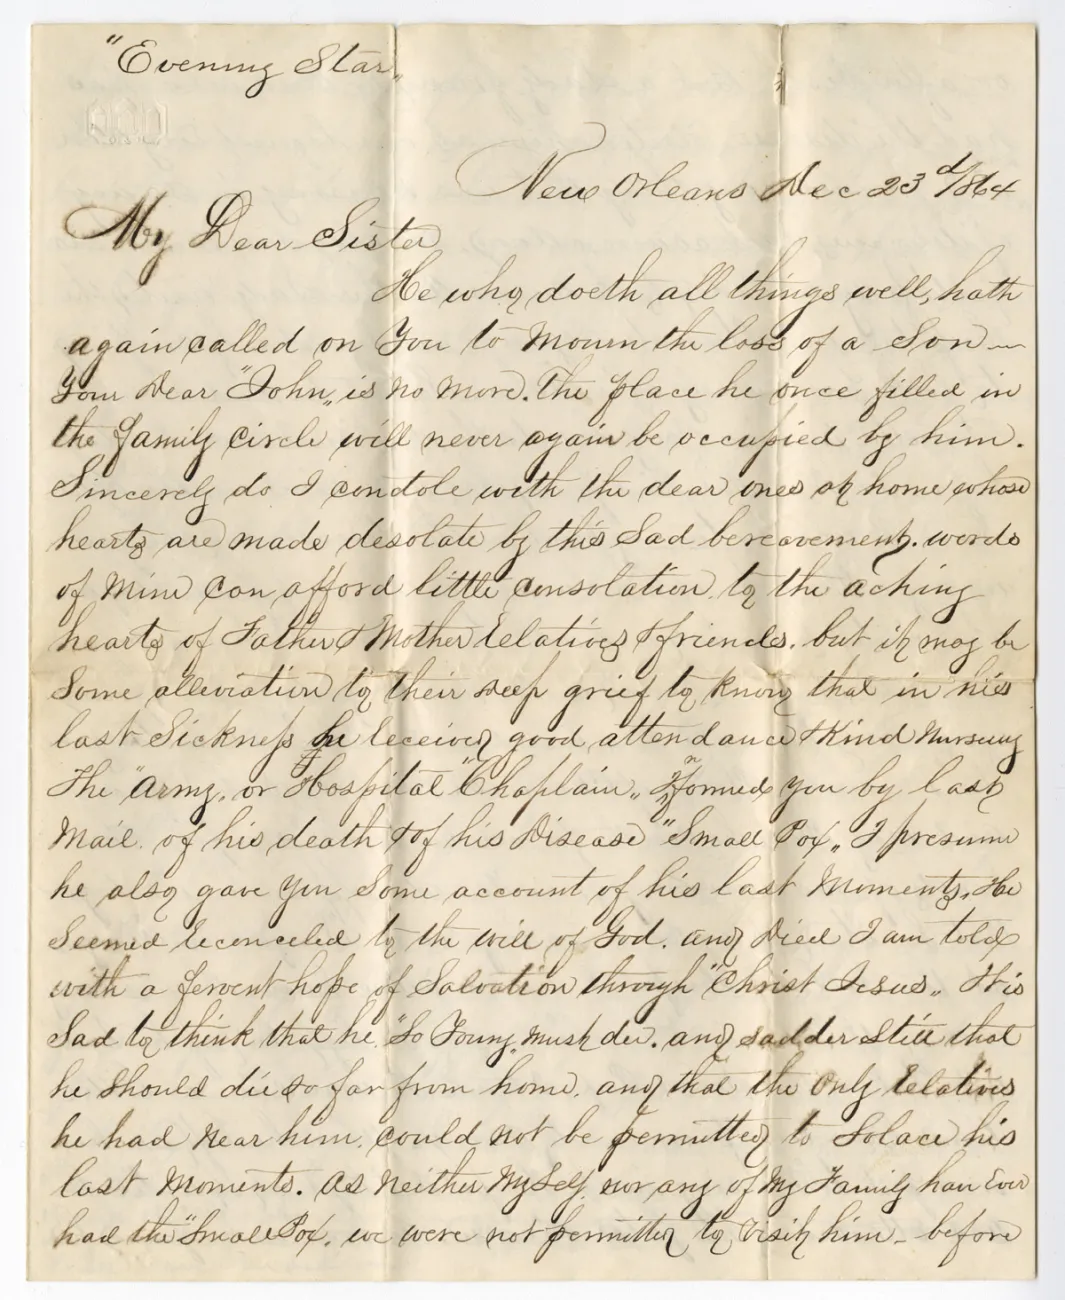 "Evening Star„
New Orleans Dec 23d/864
My Dear Sister
He who doeth all things well, hath
again called on You to Mourn the loss of a Son —
Your Dear "John„ is no more. The place he once filled in
the family circle will never again be occupied by him.
Sincerely do I condole with the dear ones at home whose
hearts are made desolate by this Sad bereavement. words
of Mine can afford little consolation to the aching
hearts of Father & Mother relatives & friends. but it may be
Some alleviation to their deep grief to know that in his
last Sickness he received good attendance & Kind Nursing
The "Army. or Hospital" Chaplain„ Informed you by last
Mail. of his death & of his Disease "Small Pox„ I presume
he also gave You Some account of his last Moments. He
Seemed reconceled to the will of God. and Died I am told
with a fervent hope of Salvation through "Christ Jesus„ Tis
Sad to think that he "So Young" must die. and sadder still that
he should die so far from home. and that the only relatives
he had near him. could not be permitted to Solace his
last Moments. As Neither MySelf, nor any of My Family have Ever
had the "Small Pox. we were not permitted to visit him — before